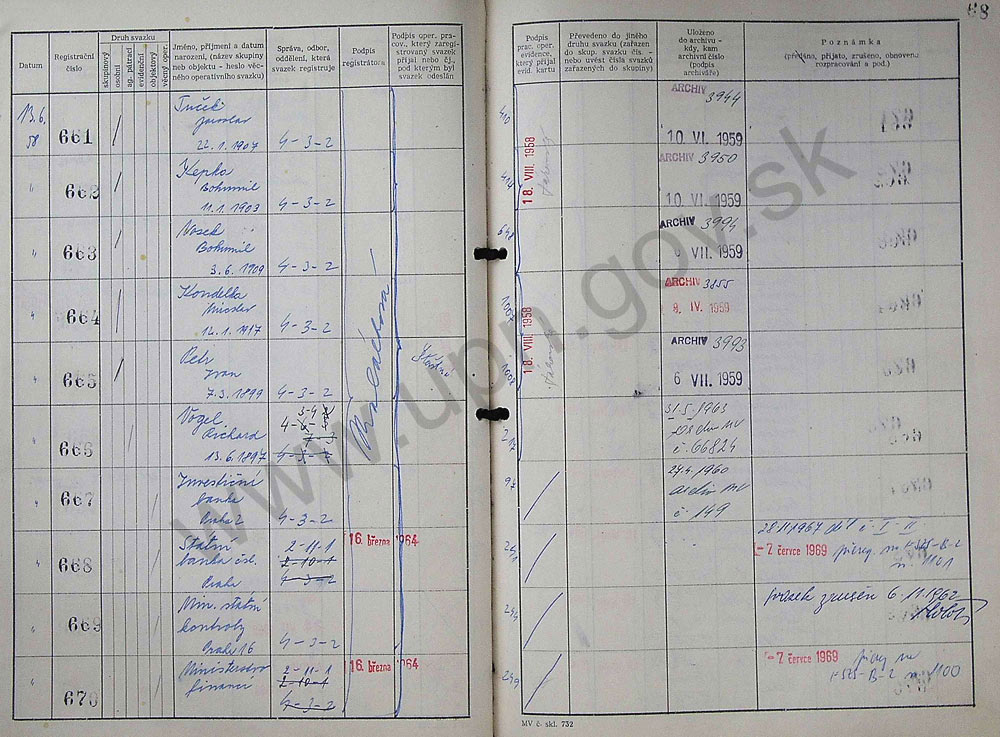 68
Datum
Registrační číslo
Druh svazku
skupinový
osobní
ag. pátrací
evidenční
objektový
věcný oper.
Jméno, příjmení a datum narození, (název skupiny neb objektu - heslo věcného operativního svazku)
Správa, odbor, oddělení, která svazek registruje
Podpis registrátora
Podpis oper. prac., který zaregistrovaný svazek přijal nebo čj., pod kterým byl svazek odeslán
Podpis prac. oper. evidence, který přijal evid. kartu
Převedeno do jiného druhu svazku (zařazen do skup. svazku čís. - nebo uvést čísla svazků zařazených do skupiny)
Uloženo do archivu - kdy, kam archivní číslo (podpis archiváře)
Poznámka
(předáno, přijato, zrušeno, obnoveno rozpracování a pod.)
13.6. 58
661
Tuček
Jaroslav
22.1.1907 4-3-2
410
ARCHIV 3944
10 VI. 1959
662
Kepka
Bohumil
11.1.1903 4-3-2
414
18. VIII. 1958
ARCHIV 3950
10 VI. 1959
663
Vosek
Bohumil
3.6.1909 4-3-2
648
ARCHIV 3994
6 VII. 1959
664
Kondelka
12.1.1917 4-3-2
ARCHIV 3855
9. IV. 1959
665
Petr
Ivan
7.3.1899 4-3-2
18. VIII. 1958
ARCHIV 3993
6 VII. 1959
666
Vogel
Richard
13.6.1897 4-3-2
217
31.5.1963
č. 66824
667
Investiční
banka
Praha 2 4-3-2
97
27.4.1960
archiv MV
č. 149
668
Státní
banka čsl.
Praha
2-11-1
2-10-1
4-3-2
16. března 1964
241
28.11.1967 díl č. I-II
-7 července 1969 přereg. na
H-525-B-2
1101
669
Min. státní
kontroly
Praha 16 4-3-2
244
svazek zrušen 6.11.1962
670
Ministerstvo
financí
2-11-1
2-10-1
4-3-2
16. března 1964
249
-7 července 1969
přereg. na
H-525-B-2 1100
MV č. skl. 732
www.upn.gov.sk